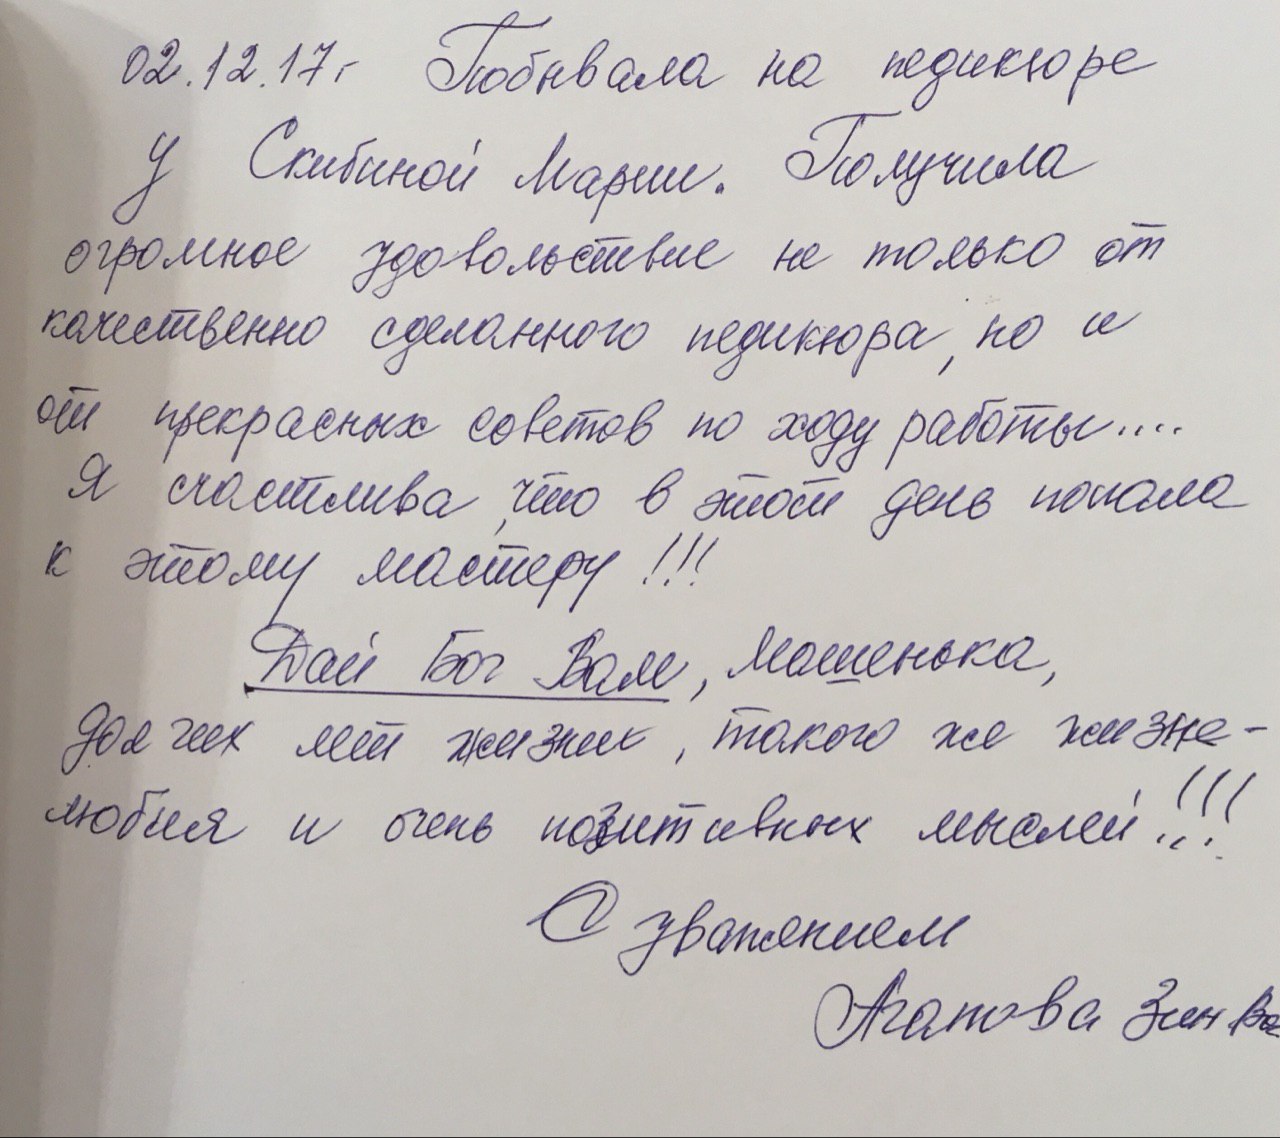 02.12.17г Побывала на педикюре
у Скибиной Марии. Получила
огромное удовольствие не только от
качественно сделанного педикюра, но и
от прекрасных советов по ходу работы....
Я счастлива, что в этот день попала
к этому мастеру!!!
Дай Бог Вам, Машенька,
долгих лет жизни, такого же жизне-
любия и очень позитивных мыслей!!!
С уважением
Агапова Зин